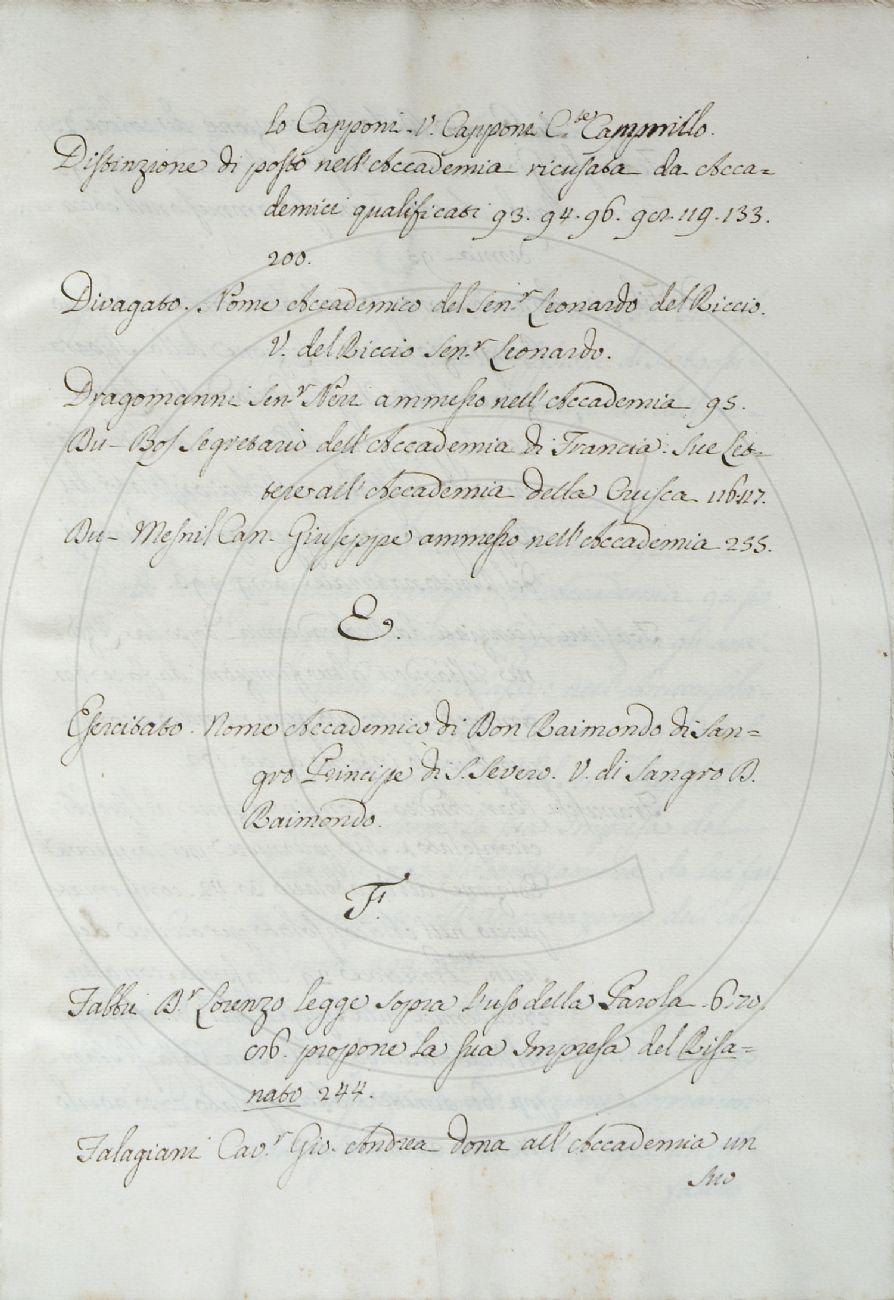 lo Capponi. V. Capponi C.te Cammillo.
Distinzione di posto nell'Accademia ricusata da Acca=
demici qualificati 93. 94. 96. 98. 119. 133.
200.
Divagato. Nome Accademico del Sen.r Leonardo del Riccio.
V. del Riccio Sen.r Leonardo.
Dragomanni Sen.r Neri ammesso nell'Accademia 95.
Du-Bos Segretario dell'Accademia di Francia: sue Let=
tere all'Accademia della Crusca 116. 117.
Du-Mesnil Can. Giuseppe ammesso nell'Accademia 255.
E.
Esercitato. Nome Accademico di Don Raimondo di San=
gro Principe di S. Severo. V. di Sangro D.
Raimondo.
F.
Fabbri D.r Lorenzo legge sopra l'uso della Parola 6. 70.
propone la sua Impresa del Risa=
nato 244.
Falagiani Cav.r Gio. Andrea dona all'Accademia un
suo